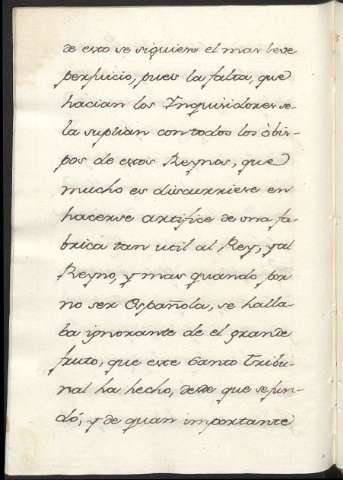 de esto se siguiese el mas leve
perjuicio, pues la falta, que
hacian los Inquisidores se
la suplian con todos los obis-
pos de estos Reynos, que
mucho es discurriese en
hacerse artifice de una fa-
brica tan util al Rey, y al
Reyno, y mas quando por
no ser Española, se halla-
ba ignorante de el grande
fruto, que este Santo Tribu-
nal ha hecho, desde que se fun-
dó, y de quan importante